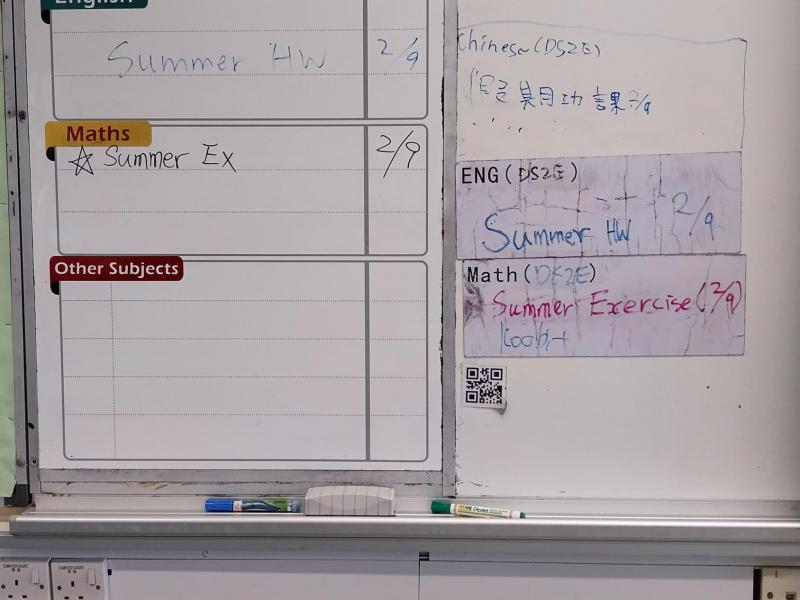 English
Summer HW 2/9
Maths
☆ Summer Ex 2/9
Other Subjects
Chinese (DS2E)
假期功課 2/9
ENG (DS2E)
Summer HW 2/9
Math (DS2E)
Summer Exercise (2/9)